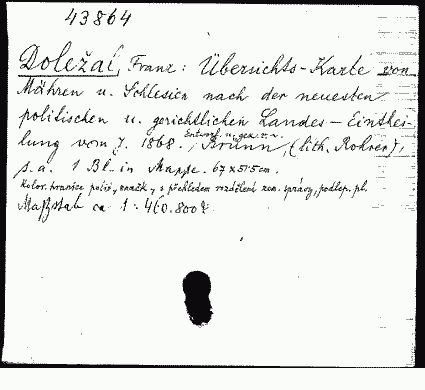 43864
Doležal, Franz: Übersichts-Karte von
Mähren u. Schlesien nach der neuesten
politischen u. gerichtlichen Landes-Einthei-
lung vom J. 1868. Entworf. u. gez. v. - Brünn, (lith. Rohrer),
s.a. 1 Bl. in Mappe. 67 x 51·5 cm.
Kolor. hranice polit., značk., s přehledem rozdělení zem. správy, podlep. pl.
Maßstab ca 1: